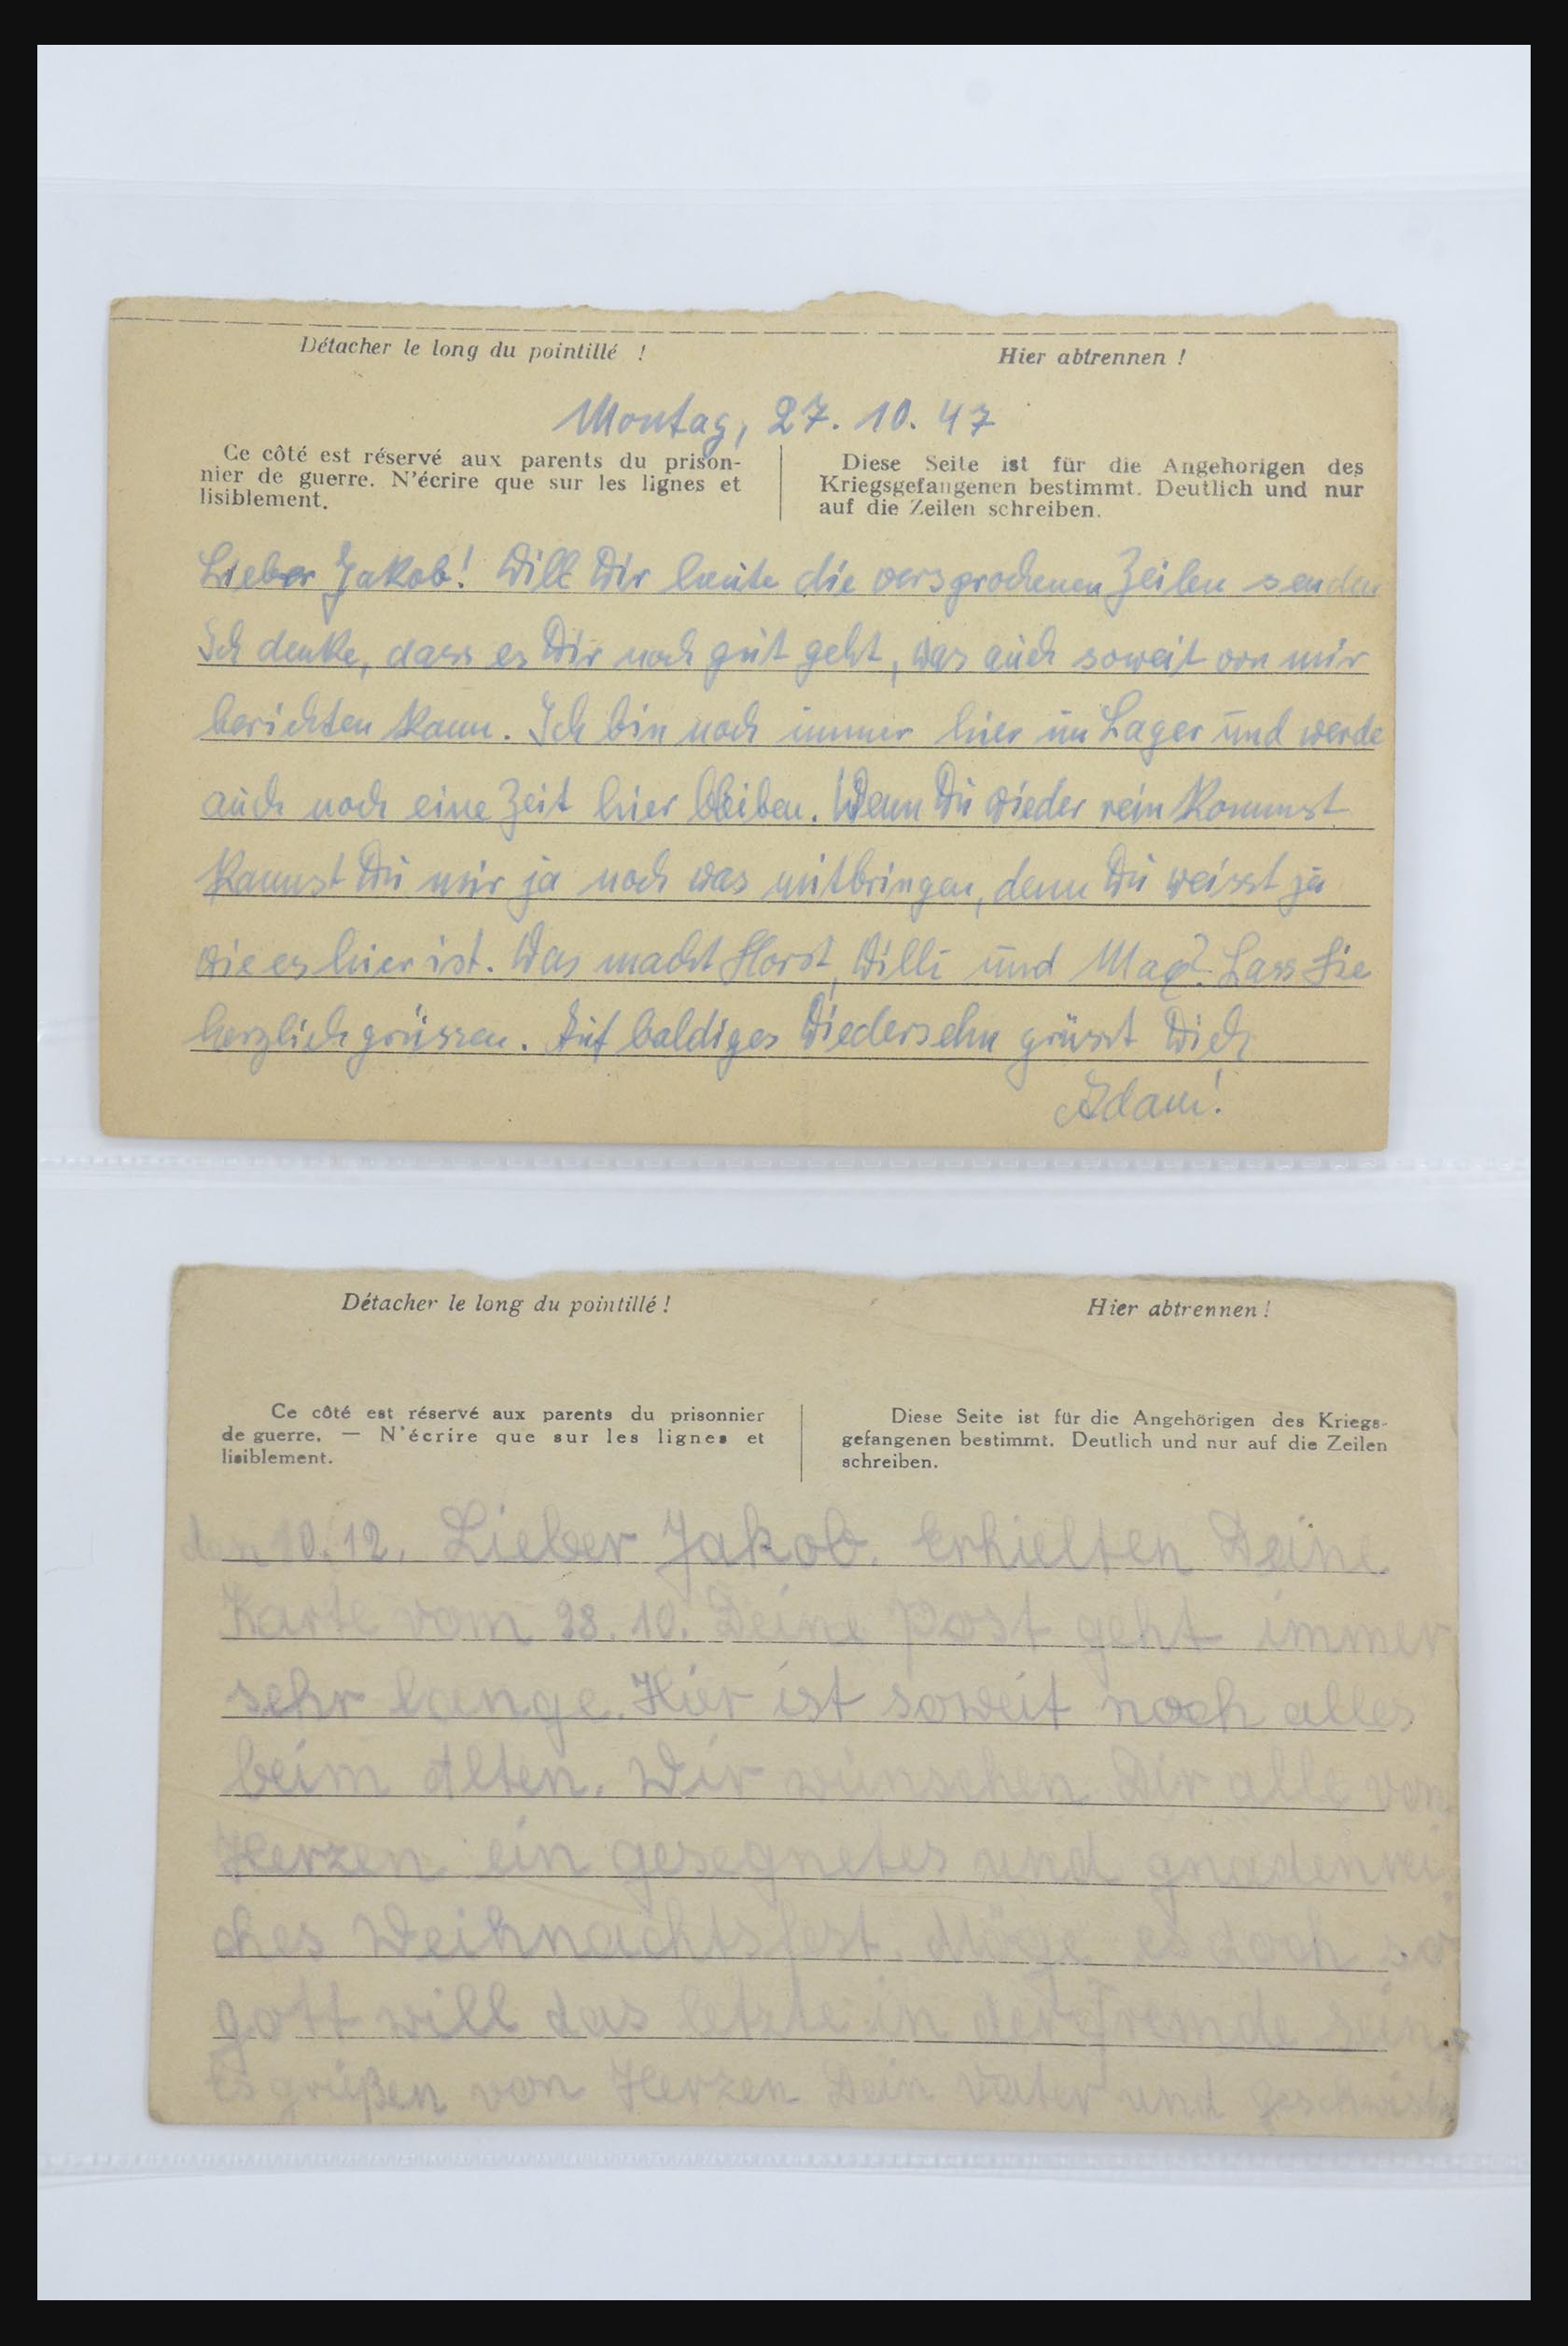 Détacher le long du pointillé !
Hier abtrennen !
Montag, 27. 10. 47
Ce côté est réservé aux parents du prison-
nier de guerre. N'écrire que sur les lignes et
lisiblement.
Diese Seite ist für die Angehörigen des
Kriegsgefangenen bestimmt. Deutlich und nur
auf die Zeilen schreiben.
Lieber Jakob! Will Dir heute die versprochenen Zeilen senden
Ich denke, dass es Dir noch gut geht, was auch soweit von mir
berichten kann. Ich bin noch immer hier im Lager und werde
auch noch eine Zeit hier bleiben. Wenn Du wieder rein kommst
kannst Du mir ja noch was mitbringen, denn Du weisst ja
wie es hier ist. Was macht Horst, Willi und Max? Lass Sie
herzlich grüssen. Auf baldiges Wiedersehn grüsst Dich
Adam!
Détacher le long du pointillé !
Hier abtrennen !
Ce côté est réservé aux parents du prisonnier
de guerre. — N'écrire que sur les lignes et
lisiblement.
Diese Seite ist für die Angehörigen des Kriegs-
gefangenen bestimmt. Deutlich und nur auf die Zeilen
schreiben.
den 10. 12. Lieber Jakob. Erhielten Deine
Karte vom 28. 10. Deine Post geht immer
sehr lange. Hier ist soweit noch alles
beim alten. Wir wünschen Dir alle von
Herzen ein gesegnetes und gnadenrei
ches Weihnachtsfest. Möge es doch so
gott will das letzte in der Fremde sein.
Es grüßen von Herzen Dein Vater und